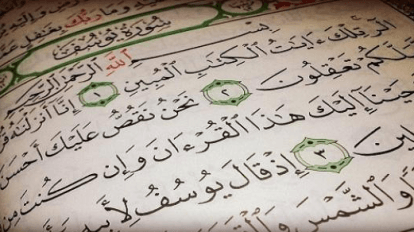 رَبُّكَ بِغَٰفِلٍ
سُورَةُ يُوسُفَ
بِسْمِ اللَّهِ الرَّحْمَٰنِ الرَّحِيمِ
الٓر تِلْكَ ءَايَٰتُ الْكِتَٰبِ الْمُبِينِ ۝١ إِنَّآ أَنزَلْنَٰهُ
لَّعَلَّكُمْ تَعْقِلُونَ ۝٢ نَحْنُ نَقُصُّ عَلَيْكَ أَحْسَنَ
حَيْنَآ إِلَيْكَ هَٰذَا الْقُرْءَانَ وَإِن كُنتَ مِن
۝٣ إِذْ قَالَ يُوسُفُ لِأَبِيهِ
وَالشَّمْسَ وَالْقَمَرَ